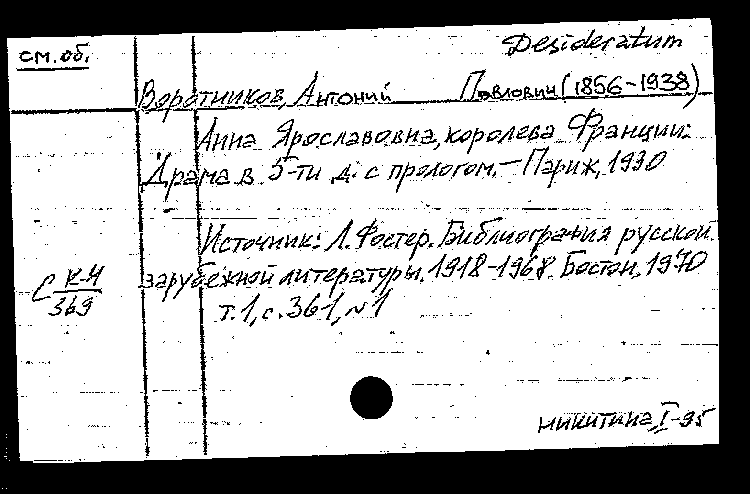 Desideratum
см. об.
Воротников, Антоний Павлович (1856-1938)
Анна Ярославовна, королева Франции:
Драма в 5-ти д. с прологом. – Париж, 1930
Источник: Л. Фостер. Библиография русской
зарубежной литературы. 1918-1968. Бостон, 1970
т. 1, с. 361, №1
С К-4
369
Никитина, I-95